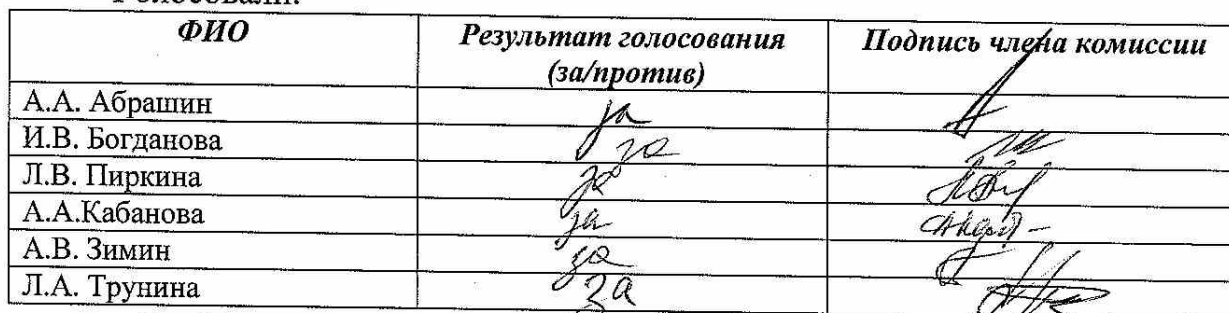 Голосовали:
ФИО Результат голосования Подпись члена комиссии
(за/против)
А.А. Абрашин за
И.В. Богданова за
Л.В. Пиркина за
А.А.Кабанова за
А.В. Зимин за
Л.А. Трунина за